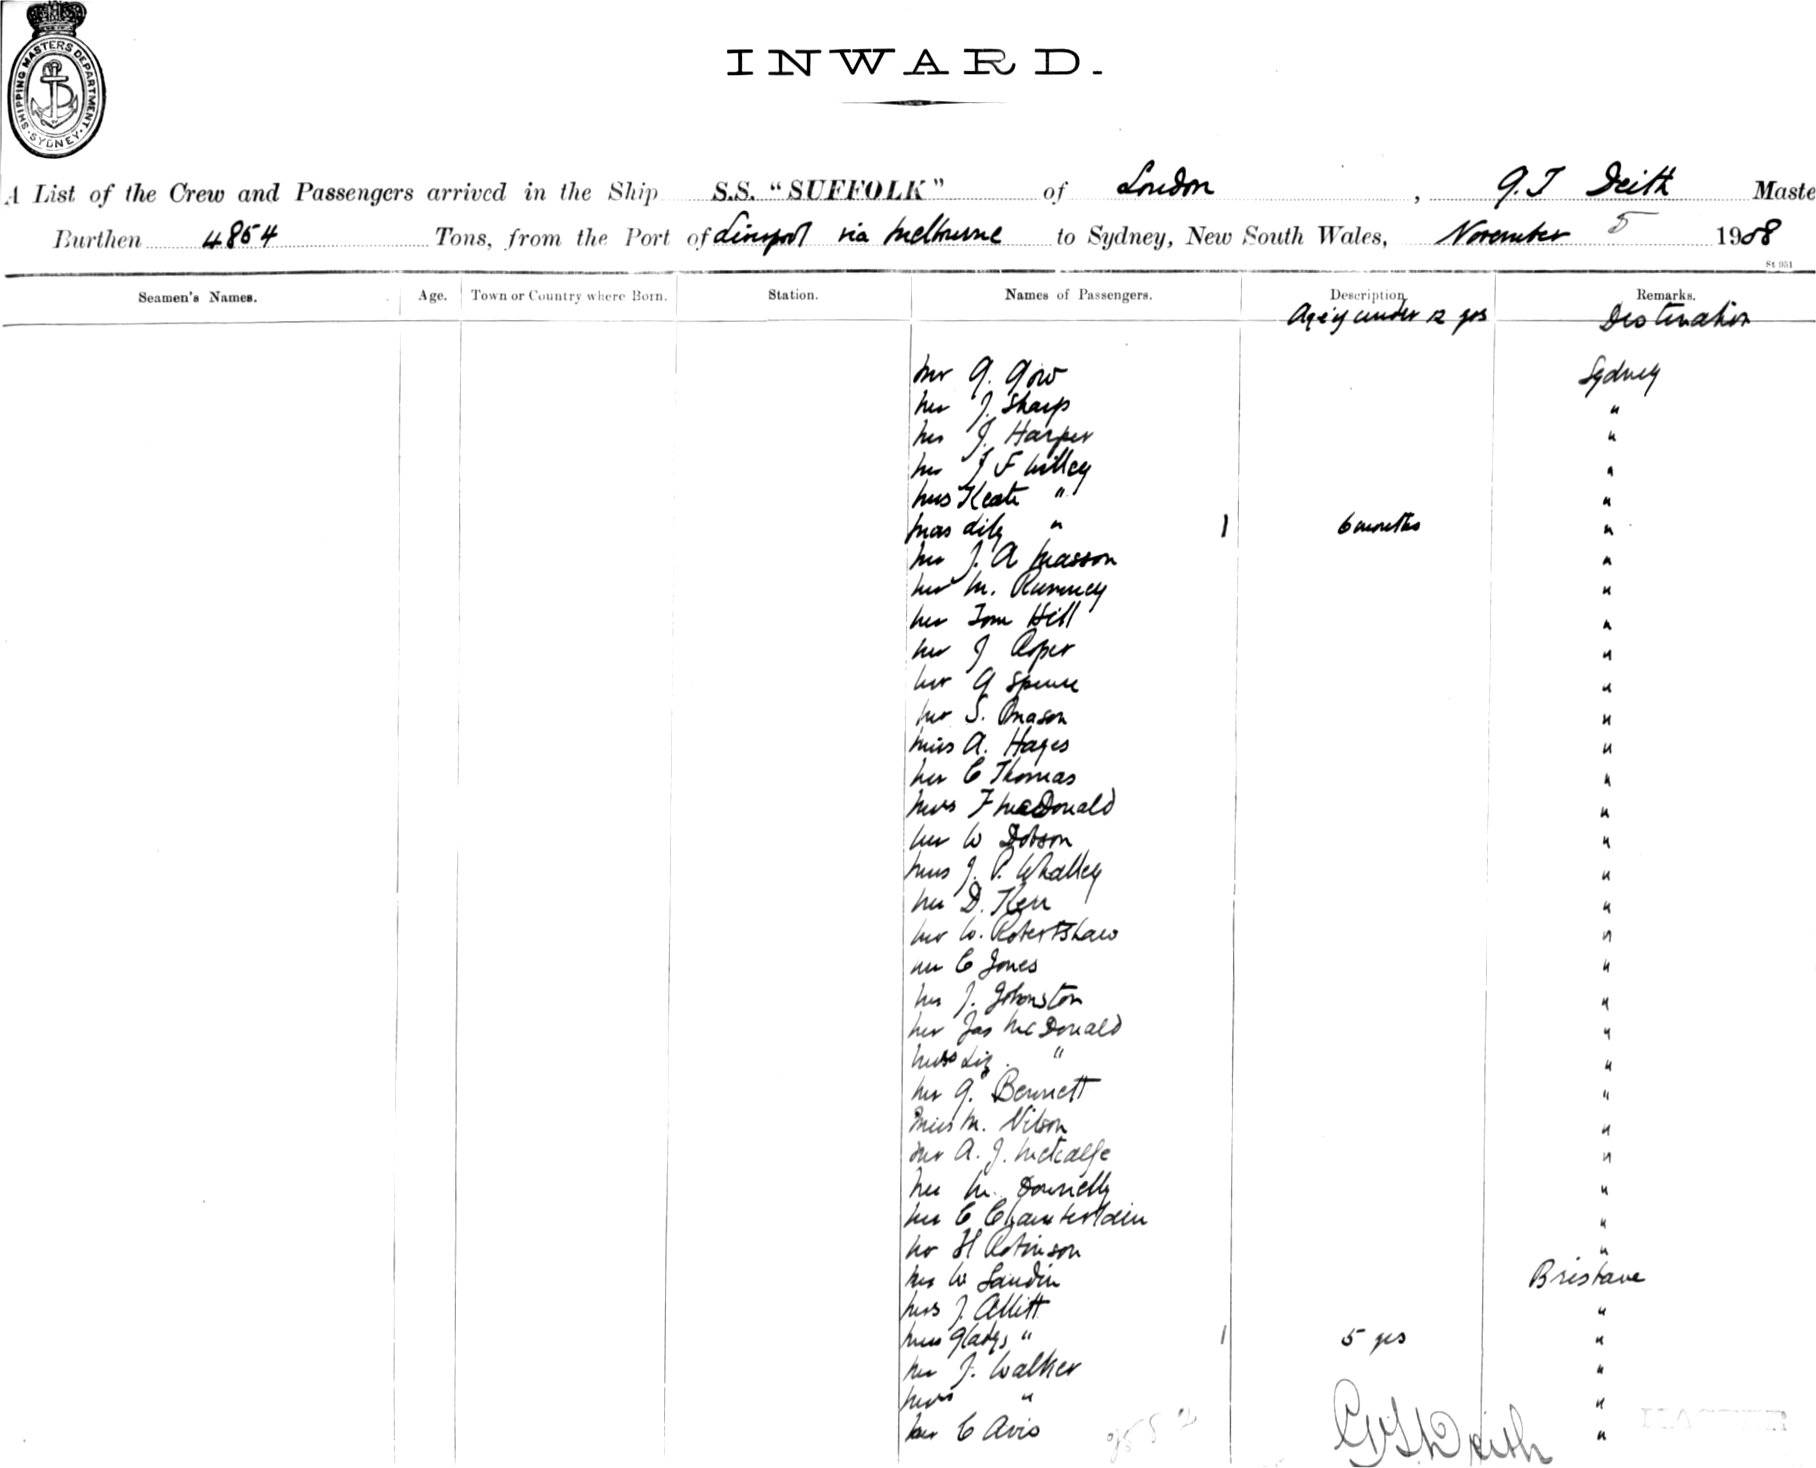 SHIPPING MASTERS DEPARTMENT
· SYDNEY ·
INWARD.
A List of the Crew and Passengers arrived in the Ship S.S. "SUFFOLK" of London, G.T Deith Maste
Burthen 4854 Tons, from the Port of Liverpool via Melbourne to Sydney, New South Wales, November 5 1908
St 951
Seamen's Names. Age. Town or Country where Born. Station. Names of Passengers. Description Remarks.
Age if under 12 yrs Destination
Mr G. Gow Sydney
Mr J. Sharp "
Mr J. Harper "
Mr J F Willey "
Mrs Kate " "
Mas " 1 6 months "
Mr J. A Masson "
Mr M. Rumney "
Mr Tom Hill "
Mr J Roper "
Mr G Spence "
Mr S. Mason "
Miss A. Hayes "
Mr C Thomas "
Mrs F MacDonald "
Mr W Dobson "
Mrs J. P. Whalley "
Mr D. Kerr "
Mr W. Robertshaw "
Mr C Jones "
Mr J. Johnston "
Mr Jas McDonald "
Miss Liz. " "
Mr G. Bennett "
Miss M. Nilson "
Mr A. J. Metcalfe "
Mr M. Donnelly "
Mr C Chamberlain "
Mr H Robinson "
Mr W Landin Brisbane
Mrs J. Allitt "
Miss Gladys " 1 5 yrs "
Mr J. Walker "
Mrs " "
Mr C Avis "
G T Deith
MASTER